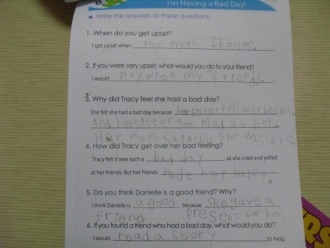 I'm Having a Bad Day!
Write the answers to these questions.
1. When do you get upset?
I get upset when my mom shouts
2. If you were very upset, what would you do to your friend?
I would play with my friends
3. Why did Tracy feel she had a bad day?
She felt she had a bad day because
and her sister got mad at her.
Her mom she was late
4. How did Tracy get over her bad feeling?
Tracy felt it was such a bad day so she cried and yelled
at her friends. But her friends made her happy.
5. Do you think Danielle is a good friend? Why?
I think Daniell is a good because she gave a
friend present for her
6. If you found a friend who had a bad day, what would you do?
I would read a story to help.